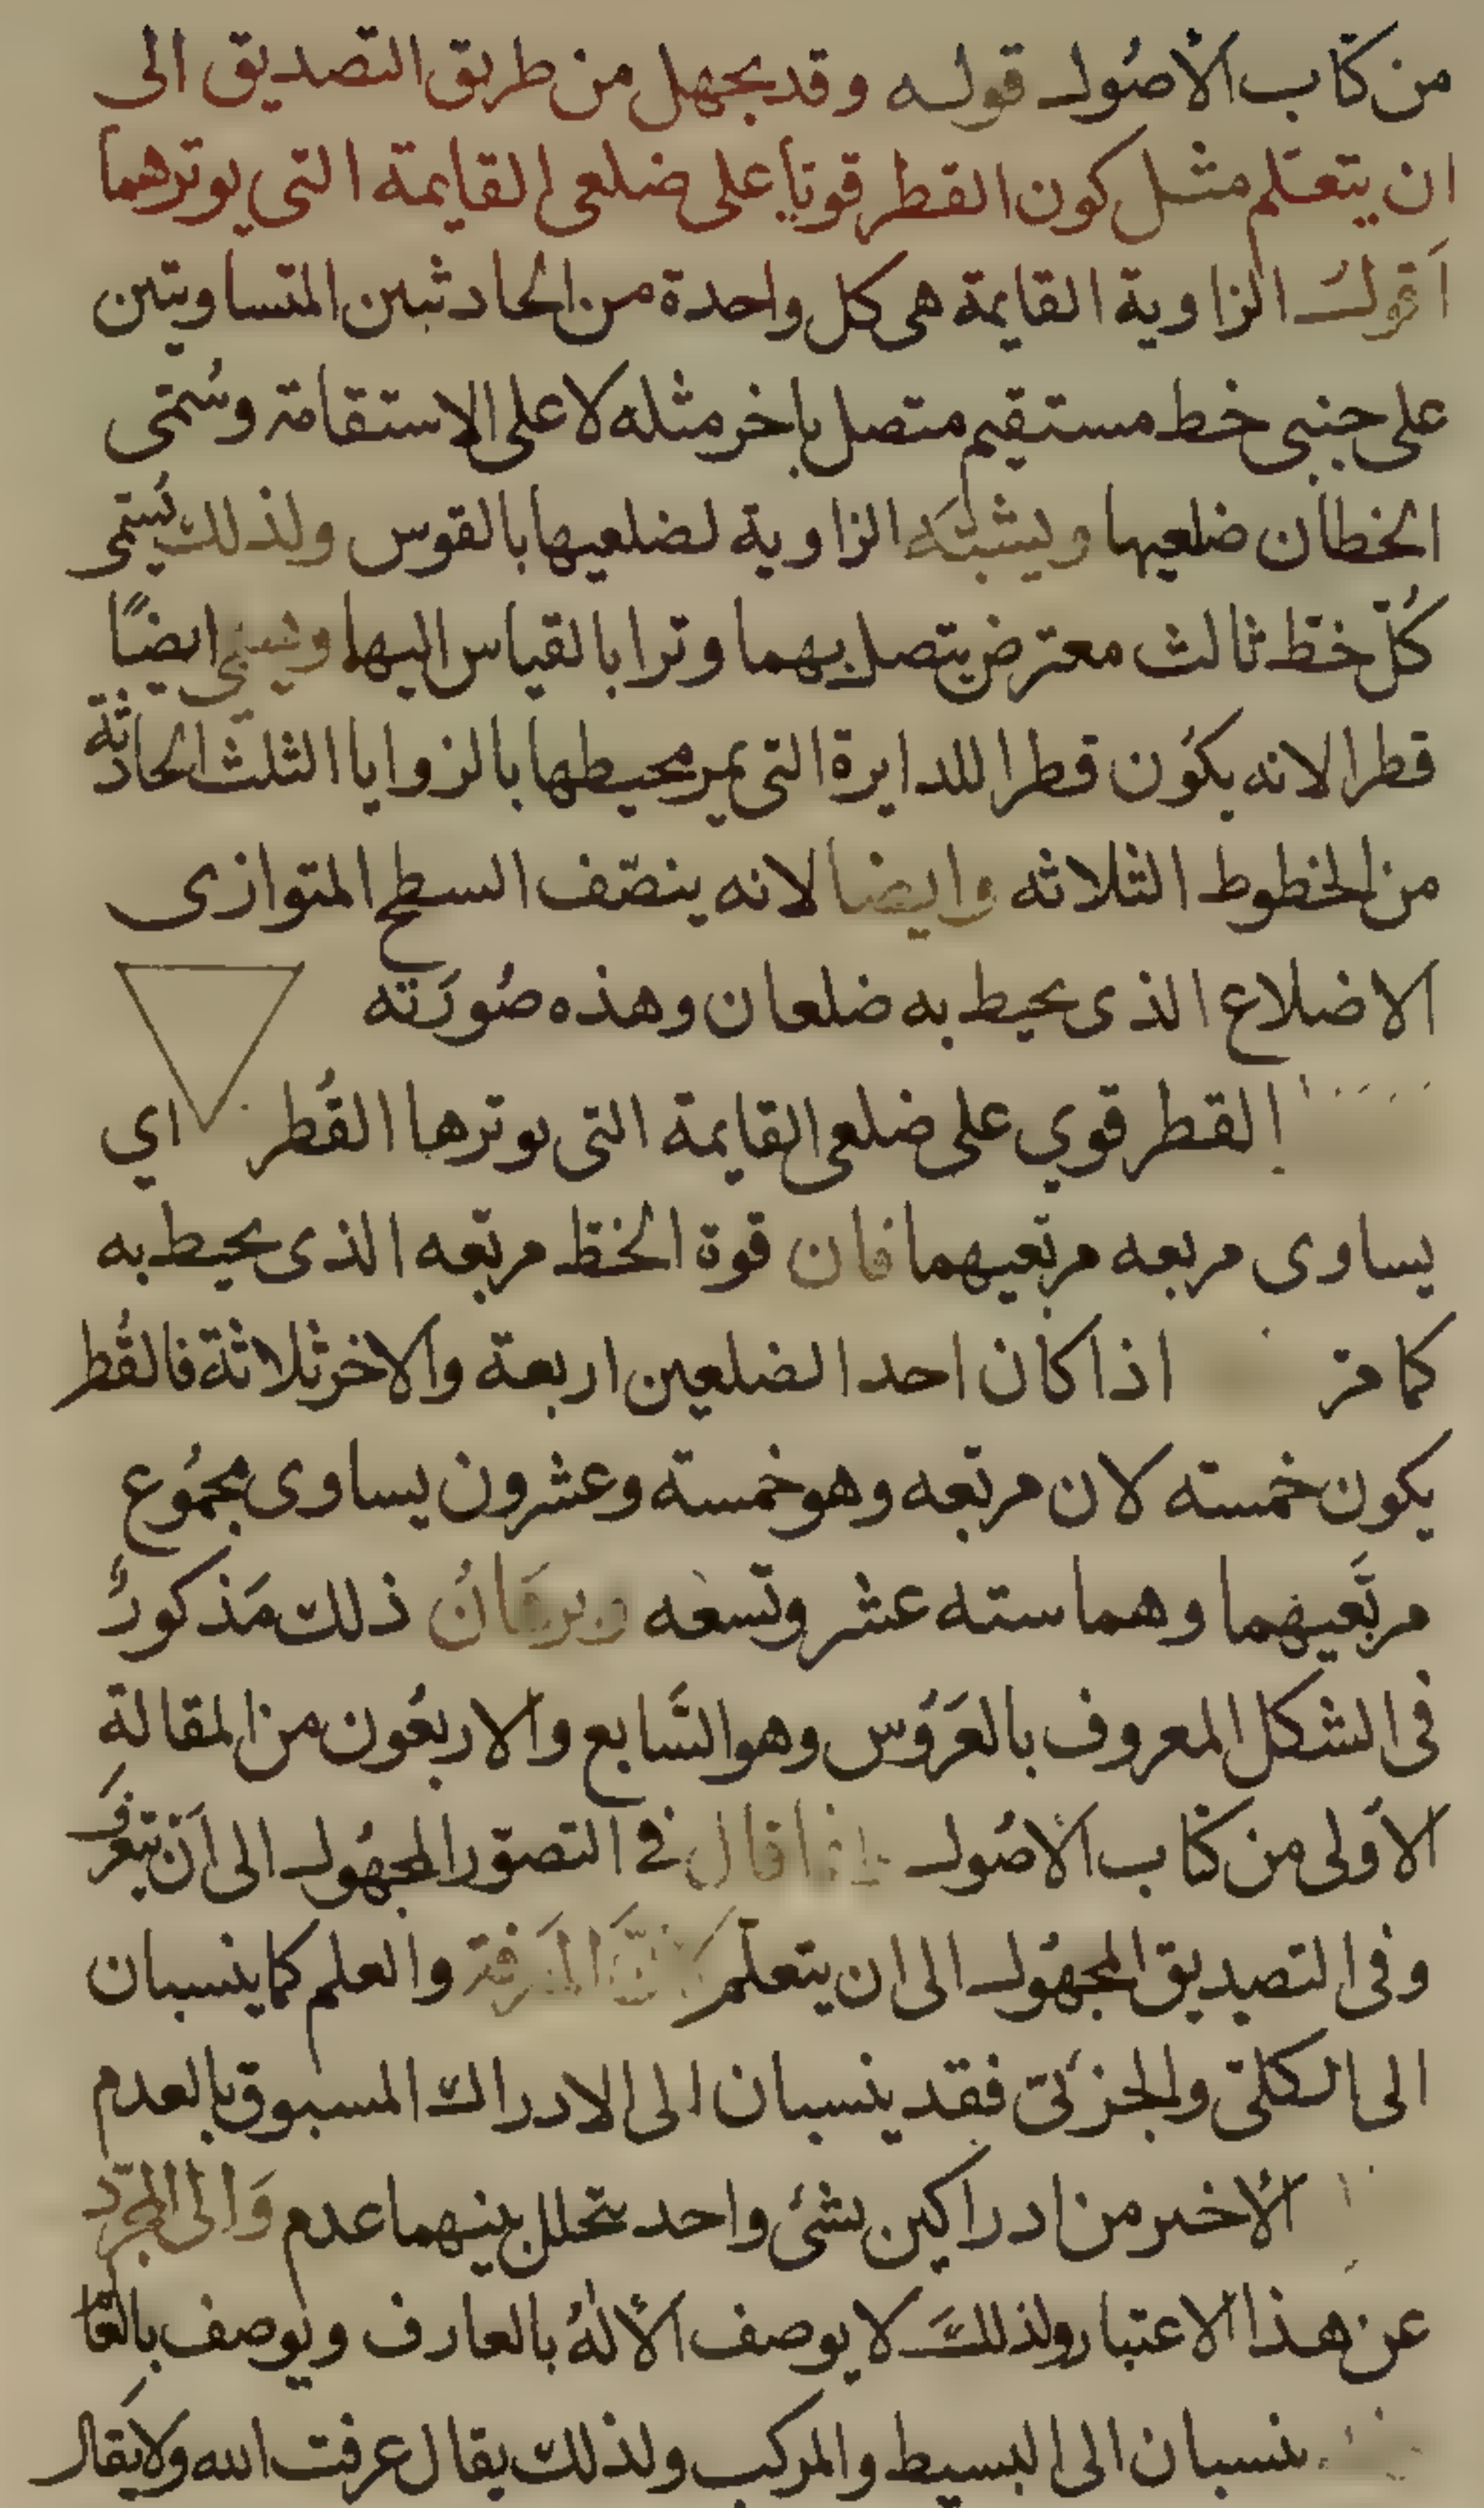 من كتاب الأصُول قوله وقد يجهل من طريق التصديق الى
ان يتعلم مثل كون القطر قويا على ضلعى القايمة التى يوترهما
اَقول الزاوية القايمة هى كل واحدة من الحادثين المتساويتين
على جنبى خط مستقيم متصل باخر مثله لا على الاستقامة وسُمّى
الخطان ضلعيها ويشبَّه الزاوية لضلعيها بالقوس ولذلك يُسمّى
كُلّ خطّ ثالث معترض يتصل بهما وترا بالقياس اليها ويسمى ايضًا
قطرا لانه يكوُن قطرا للدايرة التى يمر محيطها بالزوايا الثلث الحادثة
من الخطوط الثلاثه وايضا لانه ينصّف السطح المتوازى
الاضلاع الذى يحيط به ضلعان وهذه صُورَته
القطر قوي على ضلعى القايمة التى يوترها القُطر اي
يساوى مربعه مربّعيهما فان قوة الخطّ مربّعه الذى يحيط به
كما مرّ اذا كان احد الضلعين اربعة والاخر ثلاثة فالقُطر
يكون خمسته لان مربّعه وهو خمسة وعشرون يساوى مجمُوع
مربَّعيهما وهما سته عشر وتسعه وبرهانُ ذلك مَذكورٌ
فى الشكل المعروف بالعَرُوس وهو السَّابع والاربعُون من المقالةِ
الأولى من كتاب الأصُول انما قال في التصوّر المجهُول الى اَن يتعرّفَ
وفى التصديق المجهُول الى ان يتعلّم لانّ المعرفة والعلم كما ينسبان
الى الكلىّ والجزئىّ فقد ينسبان الى الادراك المسبوق بالعدم
الأخير من ادراكين لشئ واحد يتخلل بينهما عدم وَالى المجرّد
عن هذا الاعتبار ولذلكَ لا يوصف الألٰهُ بالعارف ويوصف بالعا
ينسبان الى البسيط والمركب ولذلك يقال عرفت الله ولا يقال